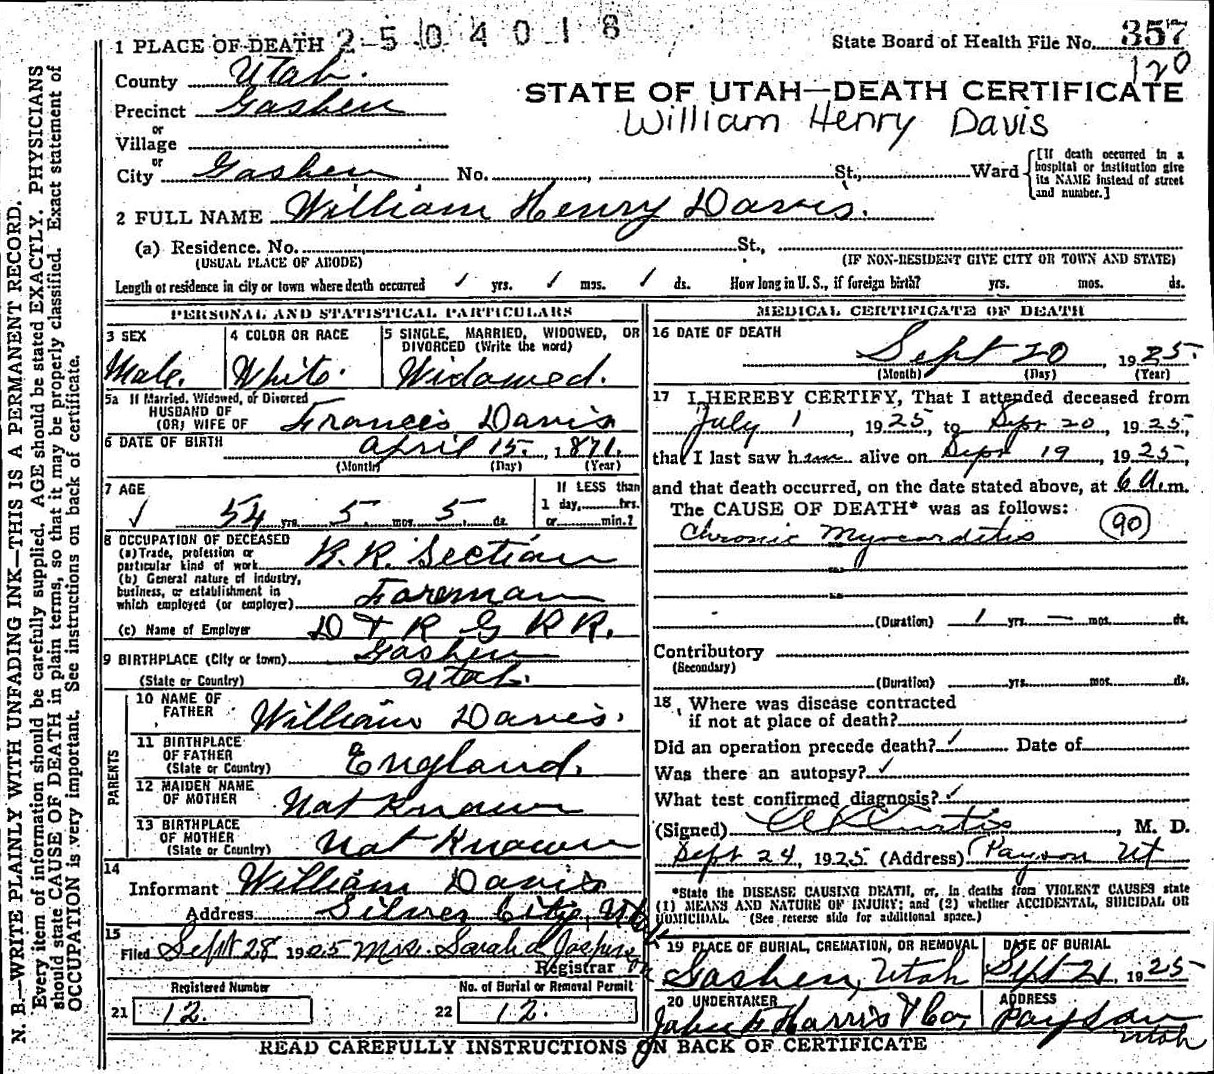 1 PLACE OF DEATH 2504018
State Board of Health File No. 357
120
County Utah.
STATE OF UTAH—DEATH CERTIFICATE
Precinct Goshen
William Henry Davis
or
Village
or
City Goshen No. , St., Ward
[If death occurred in a
hospital or institution give
its NAME instead of street
and number.]
2 FULL NAME William Henry Davis.
(a) Residence. No. St.,
(USUAL PLACE OF ABODE) (IF NON-RESIDENT GIVE CITY OR TOWN AND STATE)
Length of residence in city or town where death occurred / yrs. / mos. / ds. How long in U. S., if foreign birth? yrs. mos. ds.
PERSONAL AND STATISTICAL PARTICULARS
3 SEX
Male.
4 COLOR OR RACE
White.
5 SINGLE, MARRIED, WIDOWED, OR
DIVORCED (Write the word)
Widowed.
5a If Married, Widowed, or Divorced
HUSBAND OF
(OR) WIFE OF Frances Davis
6 DATE OF BIRTH April 15. 1871.
(Month) (Day) (Year)
7 AGE
✓ 54 yrs. 5 mos. 5 ds.
If LESS than
1 day, hrs.
or min.?
8 OCCUPATION OF DECEASED
(a) Trade, profession or
particular kind of work R.R. Section
(b) General nature of industry,
business, or establishment in
which employed (or employer) Foreman
(c) Name of Employer D & R G R R.
9 BIRTHPLACE (City or town) Goshen
(State or Country) Utah.
PARENTS
10 NAME OF
FATHER William Davis.
11 BIRTHPLACE
OF FATHER
(State or Country) England.
12 MAIDEN NAME
OF MOTHER Not Known
13 BIRTHPLACE
OF MOTHER
(State or Country) Not Known
14
Informant William Davis
Address Silver City, Utah
15
Filed Sept 28 1925 Mrs. Sarah Jasperson
Registrar
Registered Number
21 12.
No. of Burial or Removal Permit
22 12.
MEDICAL CERTIFICATE OF DEATH
16 DATE OF DEATH
Sept 20, 1925.
(Month) (Day) (Year)
17 I HEREBY CERTIFY, That I attended deceased from
July 1, 1925, to Sept 20, 1925,
that I last saw him alive on Sept 19, 1925,
and that death occurred, on the date stated above, at 6 A.m.
The CAUSE OF DEATH* was as follows:
Chronic Myocarditis 90
(Duration) 1 yrs. — mos. ds.
Contributory
(Secondary)
(Duration) yrs. mos. ds.
18 Where was disease contracted
if not at place of death?
Did an operation precede death? ✓ Date of
Was there an autopsy? ✓
What test confirmed diagnosis? ✓
(Signed) Curtis, M. D.
Sept 24, 1925 (Address) Payson Ut
*State the DISEASE CAUSING DEATH, or, in deaths from VIOLENT CAUSES state
(1) MEANS AND NATURE OF INJURY; and (2) whether ACCIDENTAL, SUICIDAL OR
HOMICIDAL. (See reverse side for additional space.)
19 PLACE OF BURIAL, CREMATION, OR REMOVAL
Goshen, Utah
DATE OF BURIAL
Sept 21, 1925
20 UNDERTAKER
John F Harris & Co,
ADDRESS
Payson
Utah
READ CAREFULLY INSTRUCTIONS ON BACK OF CERTIFICATE
N. B.—WRITE PLAINLY WITH UNFADING INK—THIS IS A PERMANENT RECORD.
Every item of information should be carefully supplied. AGE should be stated EXACTLY. PHYSICIANS
should state CAUSE OF DEATH in plain terms, so that it may be properly classified. Exact statement of
OCCUPATION is very important. See instructions on back of certificate.